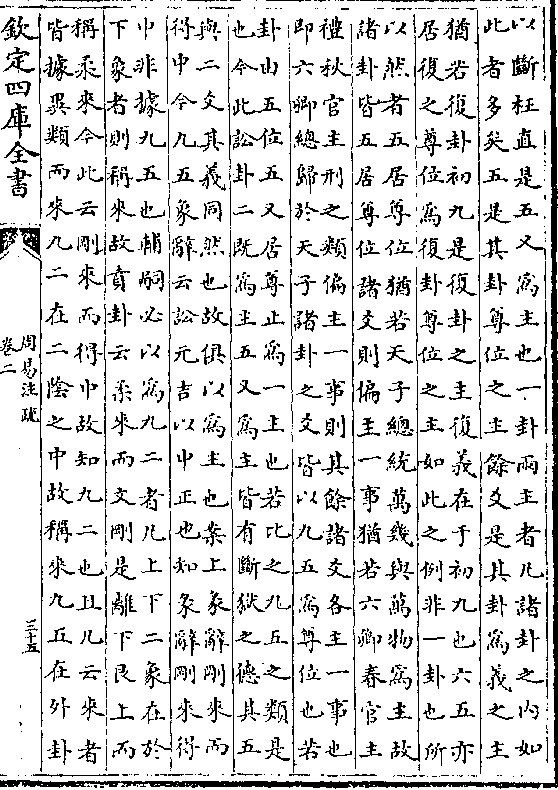 以斷枉直是五又為主也一卦兩主者凡諸卦之内如
此者多矣五是其卦尊位之主餘爻是其卦為義之主
猶若復卦初九是復卦之主復義在于初九也六五亦
居復之尊位為復卦尊位之主如此之例非一卦也所
以然者五居尊位猶若天子總統萬幾與萬物為主故
諸卦皆五居尊位諸爻則偏主一事猶若六卿春官主
禮秋官主刑之類偏主一事則其餘諸爻各主一事也
即六卿總歸於天子諸卦之爻皆以九五為尊位也若
卦由五位五又居尊止為一主也若比之九五之類是
也今此訟卦二既為主五又為主皆有斷獄之德其五
與二爻其義同然也故俱以為主也案上彖辭剛來而
得中今九五象辭云訟元吉以中正也知彖辭剛來得
中非據九五也輔嗣必以為九二者凡上下二象在於
下象者則稱來故賁卦云柔來而文剛是離下艮上而
稱柔來今此云剛來而得中故知九二也且凡云來者
皆據異類而來九二在二陰之中故稱來九五在外卦
欽定四庫全書
周易注疏
卷二
三十五